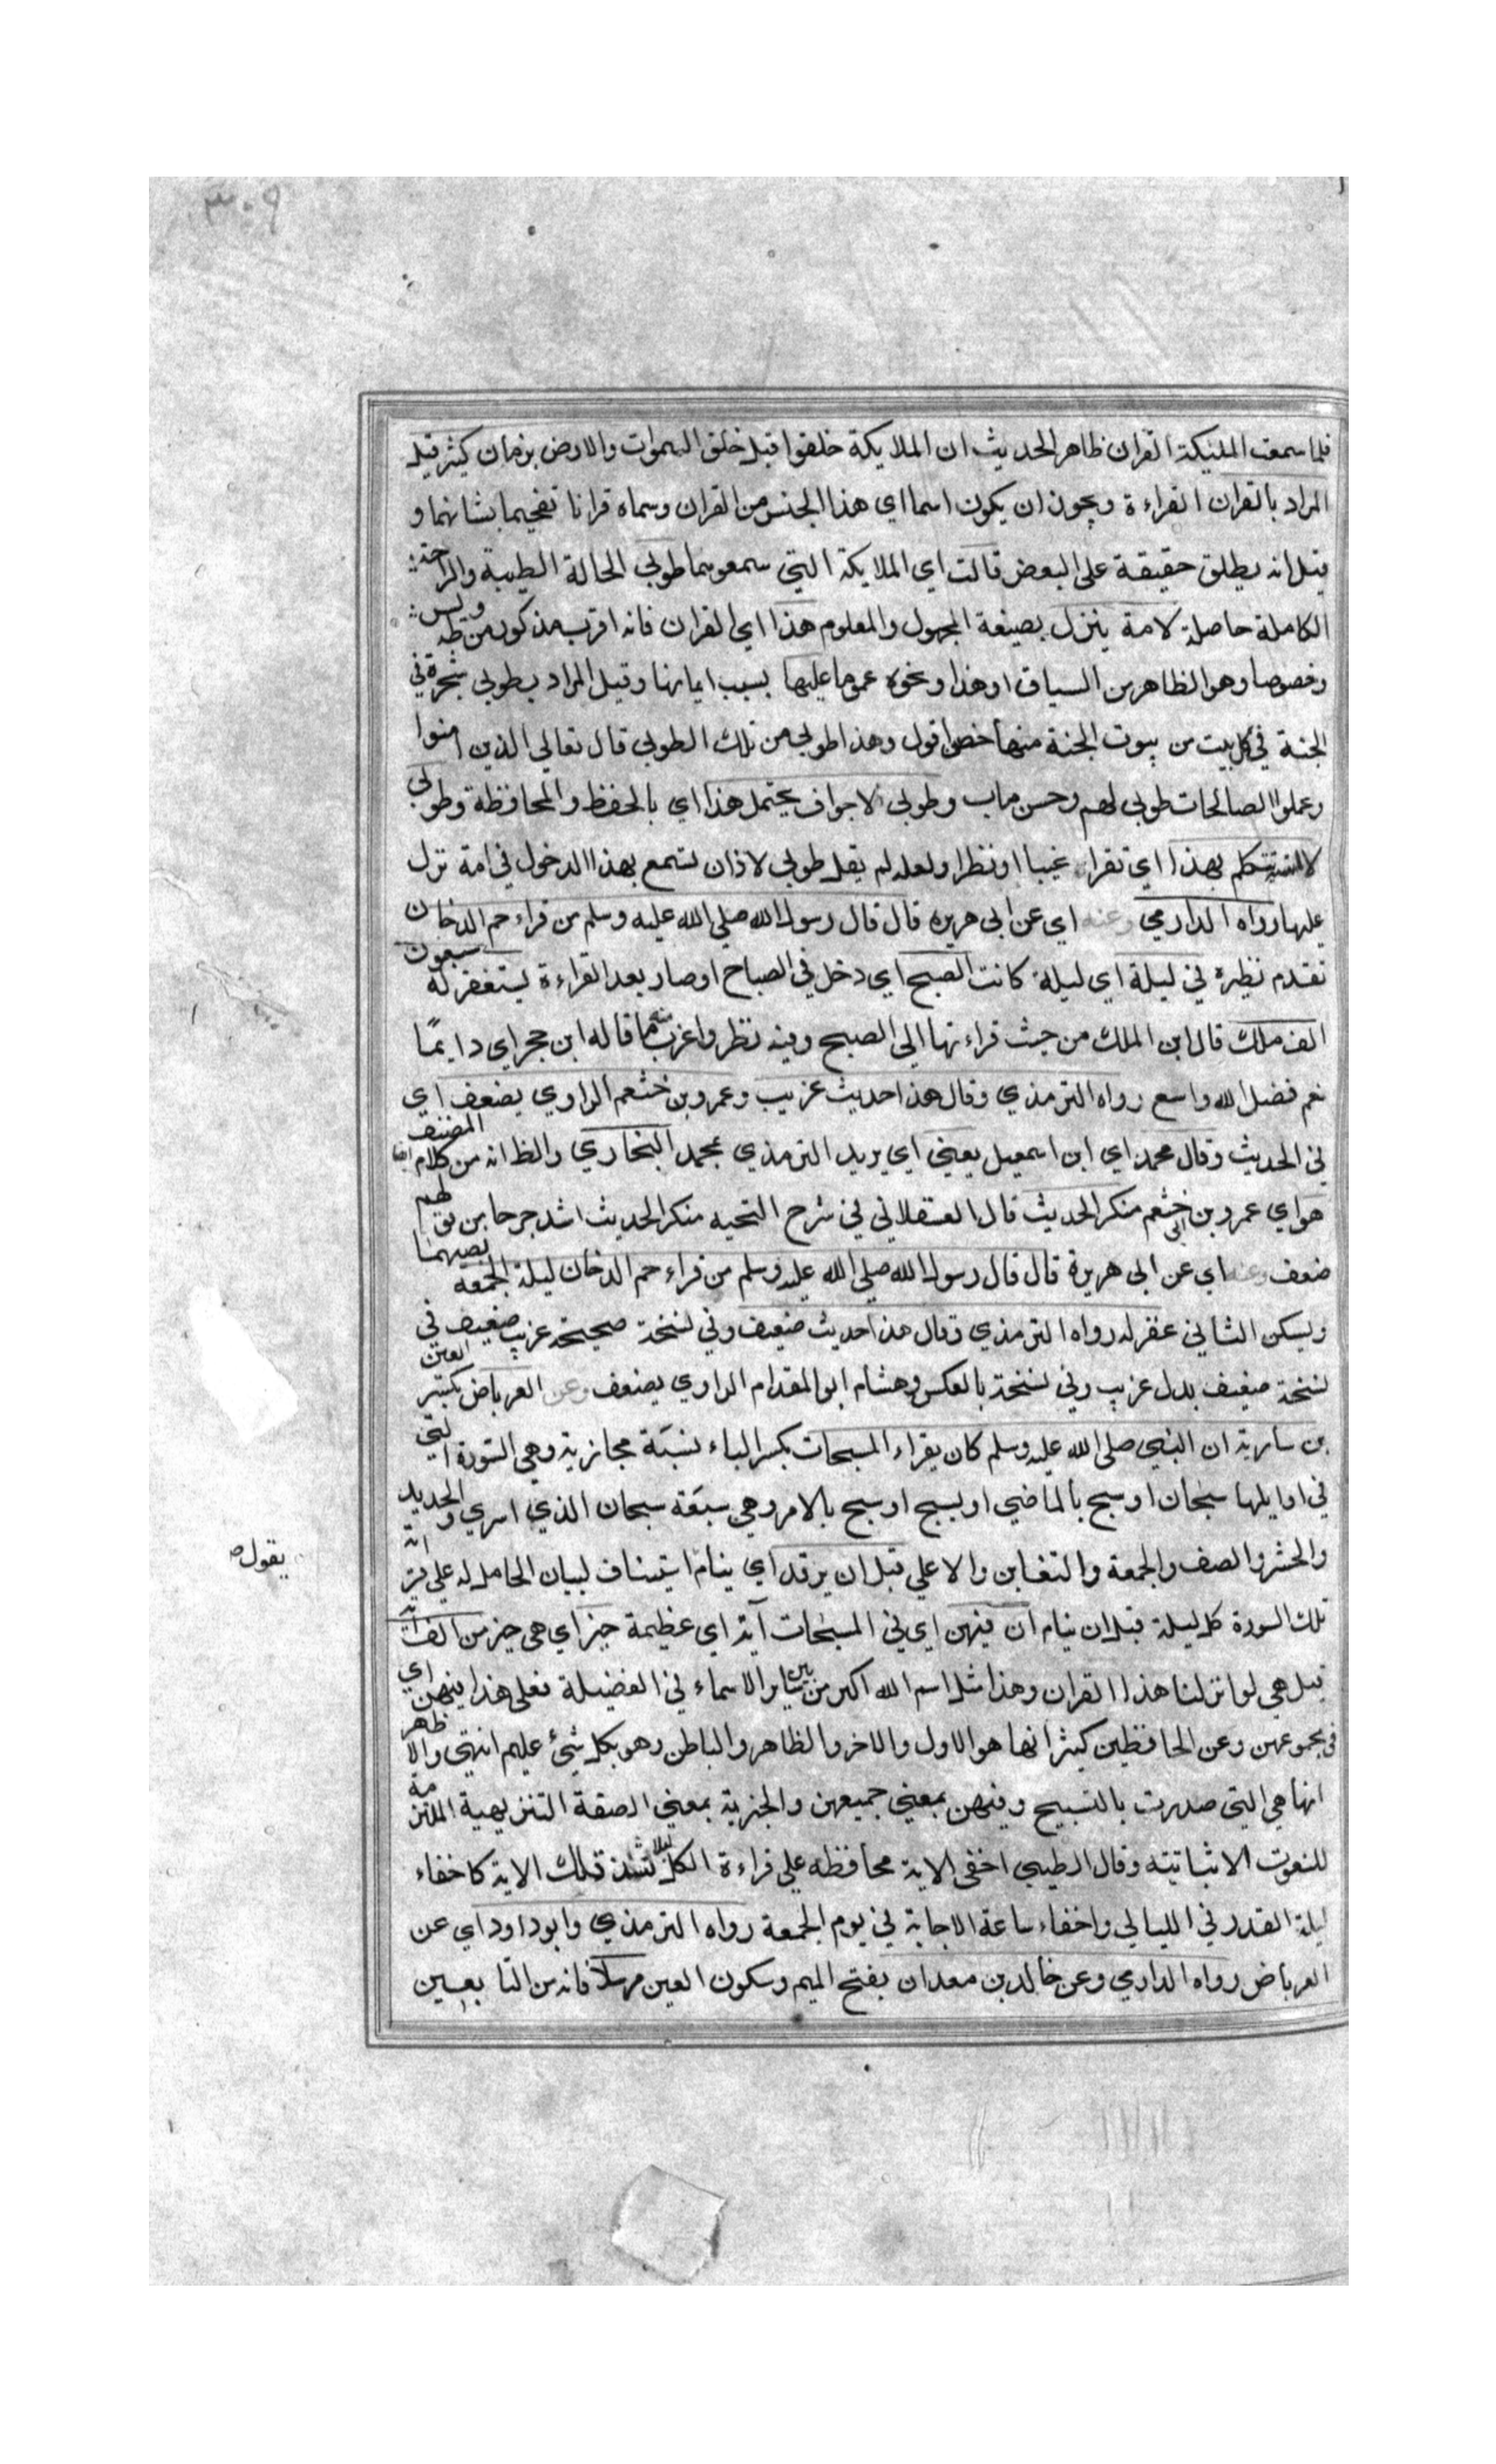 ٣٠٩
فلما سمعت الملئيكة القران ظاهر الحديث ان الملايكة خلقوا قبل خلق السموات والارض بزمان كثير قيل
المراد بالقران القراءة ويجوز ان يكون اسما اي هذا الجنس من القران وسماه قرانا تفخيما بشانهما و
قيل انه يطلق حقيقة على البعض قالت اي الملايكة التي سمعوهما طوبي الحالة الطيبة والراحة
الكاملة حاصلة لامة ينزل بصيغة المجهول والمعلوم هذا اي القران فانه اقرب مذكور من طه ويس
وخصوصا وهو الظاهر من السياق او هذا ونحوه عموما عليها بسبب ايمانها وقيل المراد بطوبي شجرة في
الجنة في كل بيت من بيوت الجنة منها خصوا قول وهذا طوبي من تلك الطوبي قال تعالي الذين امنوا
وعملوا الصالحات طوبي لهم وحسن ماب وطوبي لاجواف يحتمل هذا اي بالحفظ والمحافظة وطوبي
لالسنة تتكلم بهذا اي تقراء غيبا او نظرا ولعله لم يقل طوبي لاذان تسمع بهذا الدخول في امة نزل
عليها رواه الدارمي وعنه اي عن ابي هريره قال قال رسول الله صلي الله عليه وسلم من قراء حم الدخان
تقدم نظيره في ليلة اي ليلة كانت الصبح اي دخل في الصباح او صار بعد القراءة يستغفر له سبعون
الف ملك قال ابن الملك من حيث قراءتها الي الصبح وفيه نظر واغرب منه ما قاله ابن حجر اي دايمًا
نعم فضل الله واسع رواه الترمذي وقال هذا حديث غريب وعمرو بن خثعم الراوي يضعف اي
في الحديث وقال محمد اي ابن اسمعيل يعني اي يريد الترمذي بمحمد البخاري والظ انه من كلام المصنف ايضا
هو اي عمرو بن ابي خثعم منكر الحديث قال العسقلاني في شرح النخبه منكر الحديث اشد جرحا من قولهم
ضعف وعنه اي عن ابي هريرة قال قال رسول الله صلي الله عليه وسلم من قراء حم الدخان ليلة الجمعة بضمهما
ويسكن الثاني غفر له رواه الترمذي وقال هذا حديث ضعيف وفي نسخة صحيحة غريب ضعيف في
نسخة ضعيف بدل غريب وفي نسخة بالعكس وهشام ابو المقدام الراوي يضعف وعن العرباض بكسر العين
بن سارية ان النبي صلي الله عليه وسلم كان يقراء المسبحات بكسر الباء نسبَة مجازية وهي السورة التي
في اوايلها سبحان او سبح بالماضي او يسبح او سبح بالامر وهي سبعَة سبحان الذي اسري والحديد
والحشر والصف والجمعة والتغابن والاعلي قبل ان يرقد اي ينام استيناف لبيان الحامل له علي قراة
يقول
تلك السورة كل ليلة قبل ان ينام ان فيهن اي في المسبحات آية اي عظيمة خير اي هي خير من الف آية
قيل هي لو انزلنا هذا القران وهذا مثل اسم الله اكبر من بين ساير الاسماء في الفضيلة فعلي هذا فيهن اي
في مجموعهن وعن الحافظين كيثر انها هو الاول والاخر والظاهر والباطن وهو بكل شئ عليم انتهي والاظهر
انها هي التي صدرت بالتسبيح وفيهن بمعني جميعهن والخيرية بمعني الصفة التنزيهية الملتزمة
للنعوت الاثباتيته وقال الطيبي اخفي الاية محافظه علي قراءة الكل ليلا تشذ تلك الاية كاخفاء
ليلة القدر في الليالي واخفاء ساعة الاجابة في يوم الجمعة رواه الترمذي وابو داود اي عن
العرباض رواه الدارمي وعن خالد بن معدان بفتح الميم وسكون العين مرسلًا فانه من التابعين